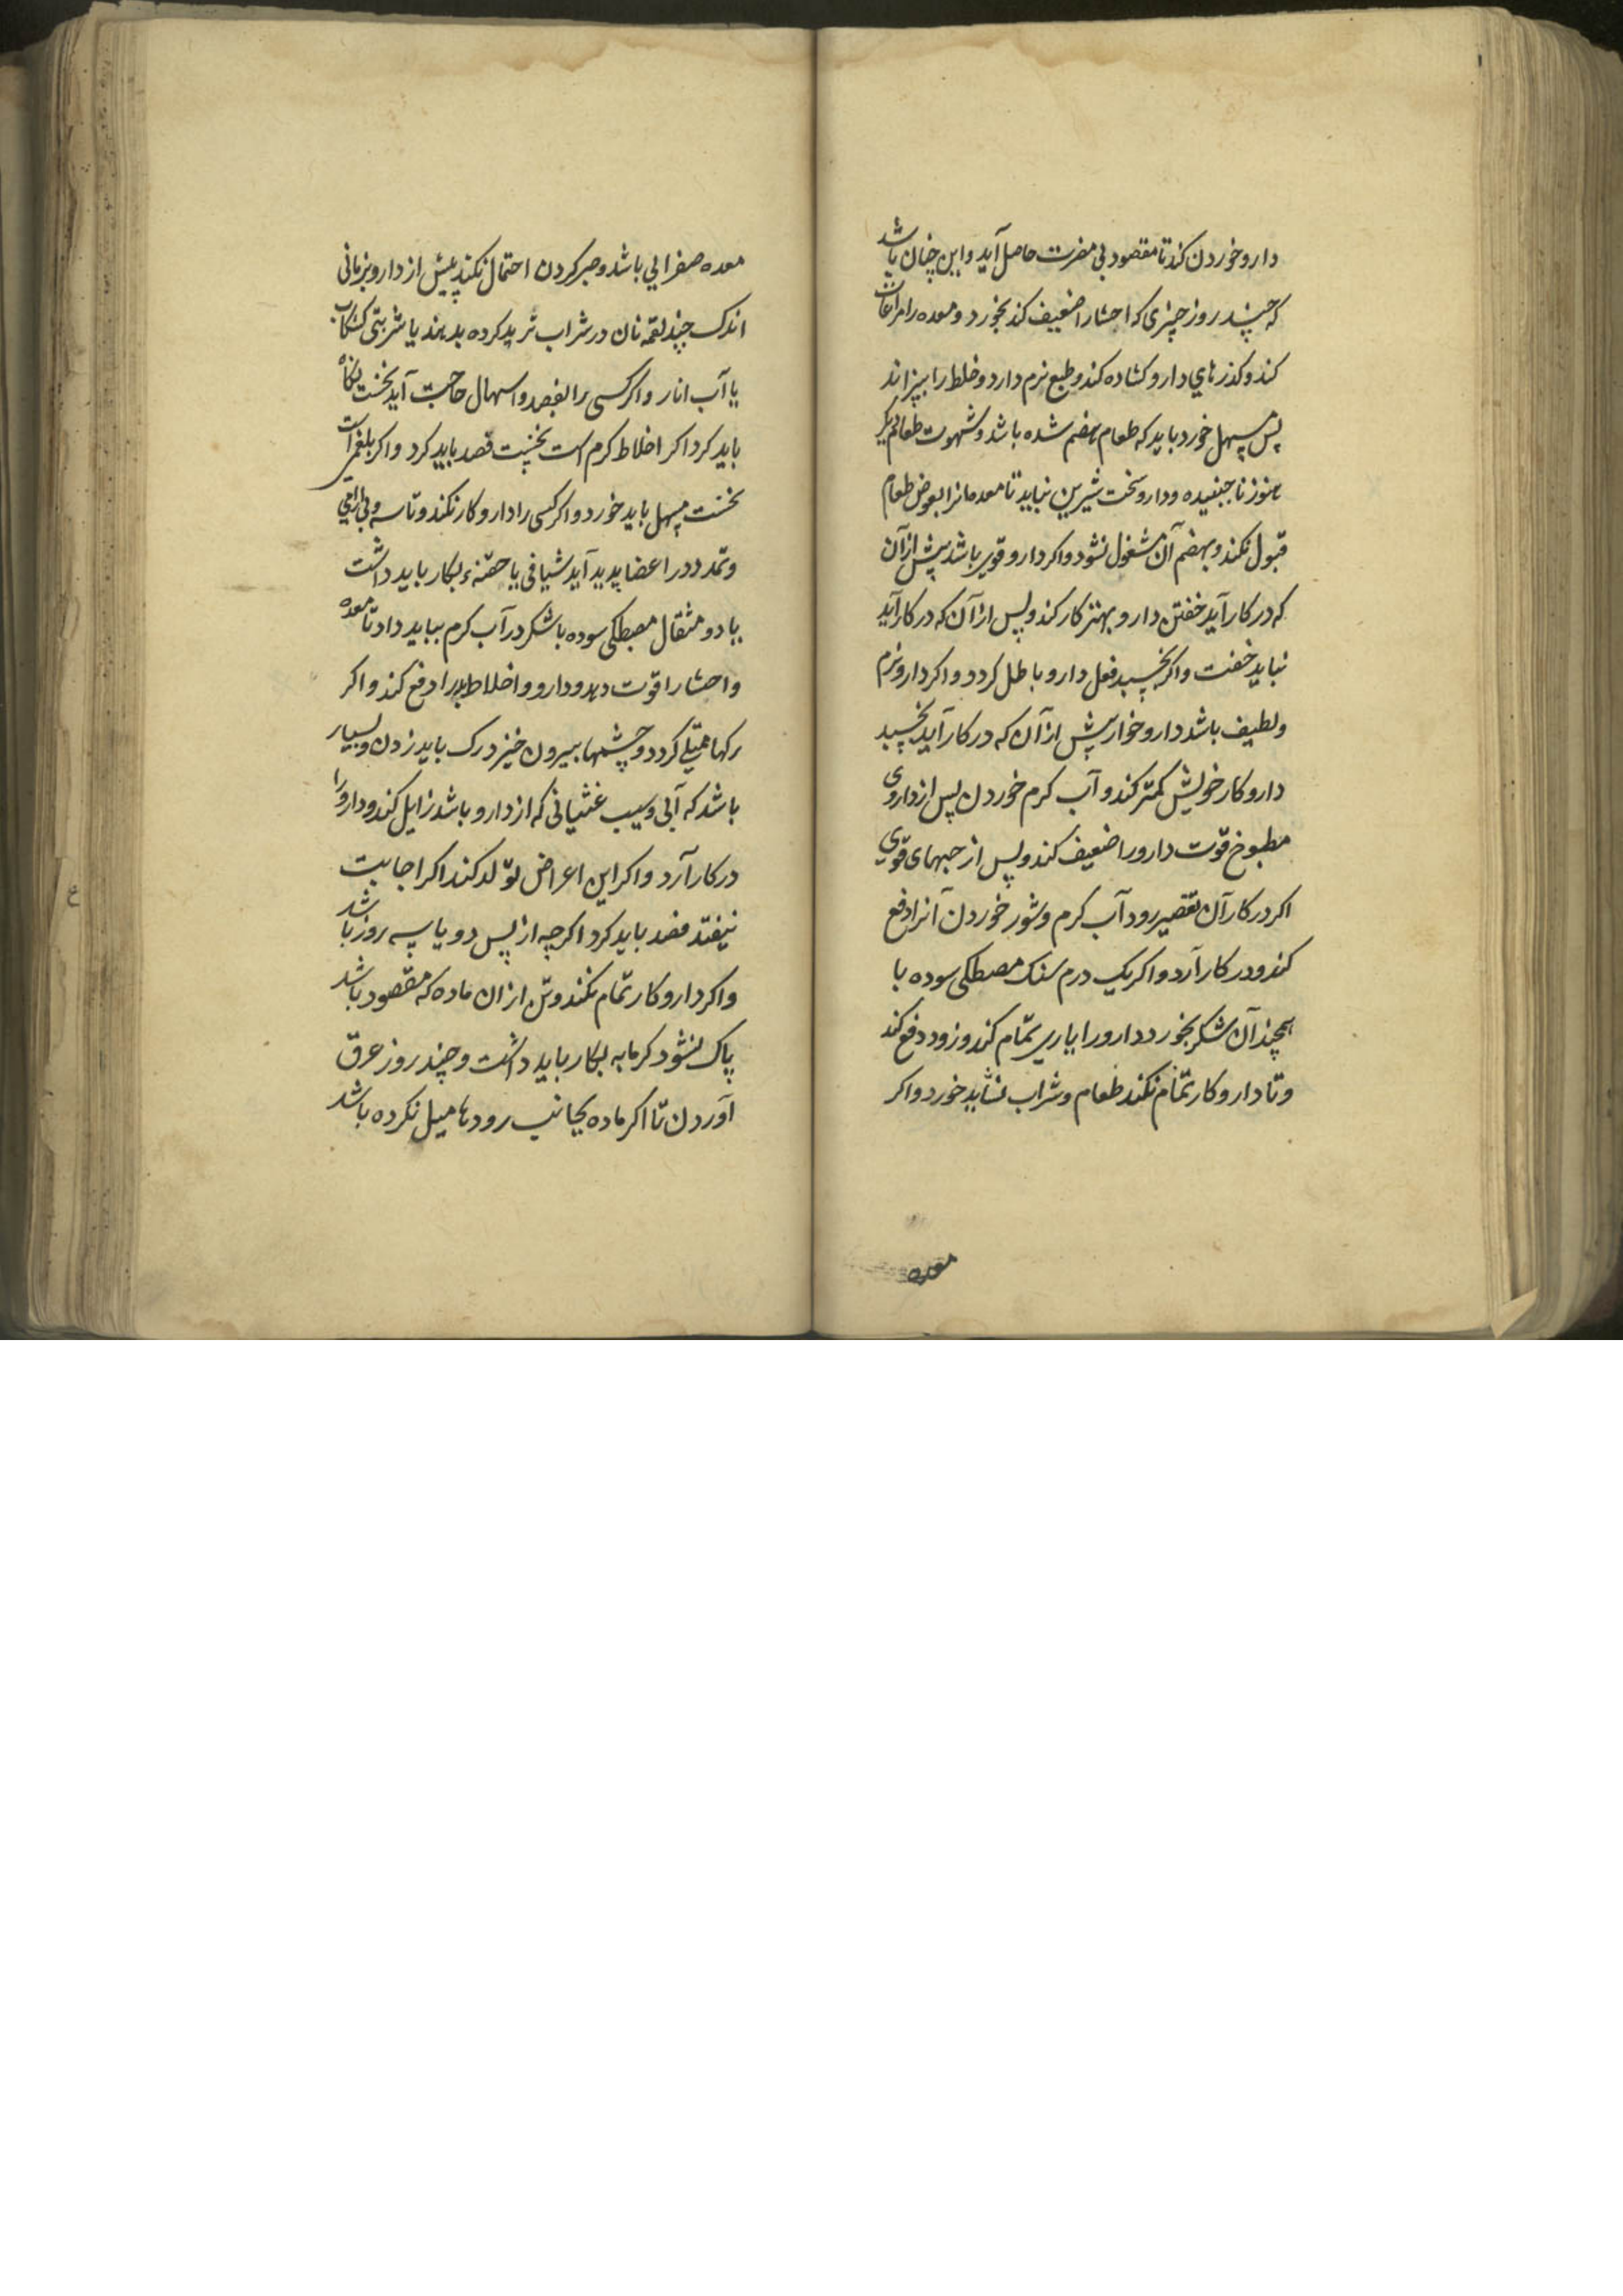 دارو خوردن کند تا مقصود بی مضرت حاصل آید و این چنان باشد
که چند روز چیزی که احشا را ضعیف کند نخورد و معده را مراعات
کند و کذرهای دارو کشاده کند و طبع نرم دارد و خلط را بپزاند
پس مسهل خورد باید که طعام هضم شده باشد و شهوت طعام دیگر
هنوز نا جنبیده و دارو سخت شیرین نباید تا معده مانرا بعوض طعام
قبول نکند و بهضم آن مشغول نشود و اکر دارو قوی باشد پیش از آن
که در کار آید خفتن دارو بهتر کار کند و پس از آن که در کار آید
نباید خفت و اکر بخسپد فعل دارو باطل کردد و اکر دارو نرم
و لطیف باشد دارو خوار پیش از آن که در کار آید بخسپد
دارو کار خویش کمتر کند و آب کرم خوردن پس از داروی
مطبوخ قوت دارو را ضعیف کند و پس از حبهای قوی
اکر در کار آن تقصیر رود آب کرم و شور خوردن آنرا دفع
کند و در کار آرد و اکر یک درم سنک مصطکی سوده با
همچند آن شکر بخورد دارو را یاری تمام کند و زود دفع کند
و تا دارو کار تمام نکند طعام و شراب نشاید خورد و اکر
معده
معده صفرایی باشد و صبر کردن احتمال نکند پیش از دارو بزمانی
اندک چند لقمه نان در شراب ثرید کرده بدهند یا شربتی کشکاب
یا آب انار و اکر کسی را بفصد و اسهال حاجت آید نخست نکاه
باید کرد اکر اخلاط کرم است نخست فصد باید کرد و اکر بلغمی است
نخست مسهل باید خورد و اکر کسی را دارو کار نکند و تاسه و بی آرامی
و تمدد در اعضا پدید آید شیافی یا حقنهٔ بکار باید داشت
یا دو مثقال مصطکی سوده با شکر در آب کرم بباید داد تا معده
و احشا را قوت دهد و دارو و اخلاط بد را دفع کند و اکر
رکها ممتلی کردد و چشمها بیرون خیزد رک باید زدن و بسیار
باشد که آبی و سیب غثیانی که از دارو باشد زایل کند و دارو را
در کار آرد و اکر این اعراض تولد کند اکر اجابت
نیفتد فصد باید کرد اکرچه از پس دو یا سه روز باشد
و اکر دارو کار تمام نکند و تن از ان ماده که مقصود باشد
پاک نشود کرمابه بکار باید داشت و چند روز عرق
آوردن تا اکر ماده بجانب رودها میل نکرده باشد